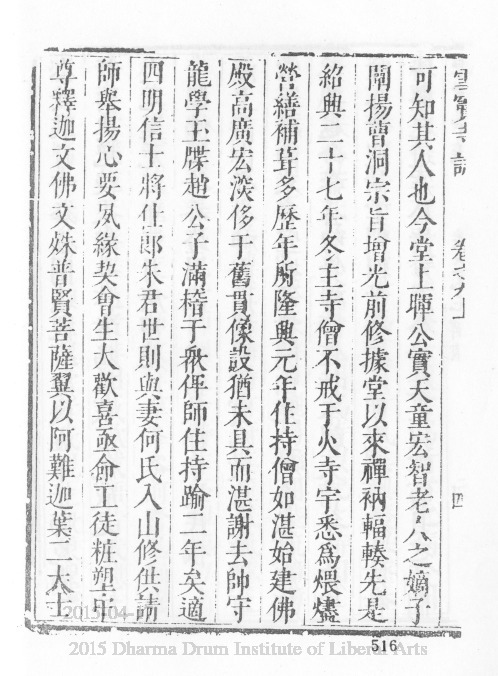 雪竇寺誌　卷之九上　四
可知其人也今堂上暉公實天童宏智老人之嫡子
闡揚曹洞宗旨增光前修據堂以來禪衲輻輳先是
紹興二十七年冬主寺僧不戒于火寺宇悉為煨燼
營繕補葺多歷年所隆興元年住持僧如湛始建佛
殿高廣宏深侈于舊貫像設猶未具而湛謝去帥守
龍學王牒趙公子潚稽于衆俾師住持踰二年矣適
四明信士將仕郎朱君世則與妻何氏入山修供請
師舉揚心要夙緣契會生大歡喜亟命工徒粧塑
尊釋迦文佛文殊普賢菩薩翼以阿難迦葉二大士
516
2015-04-
2015 Dharma Drum Institute of Liberal Arts